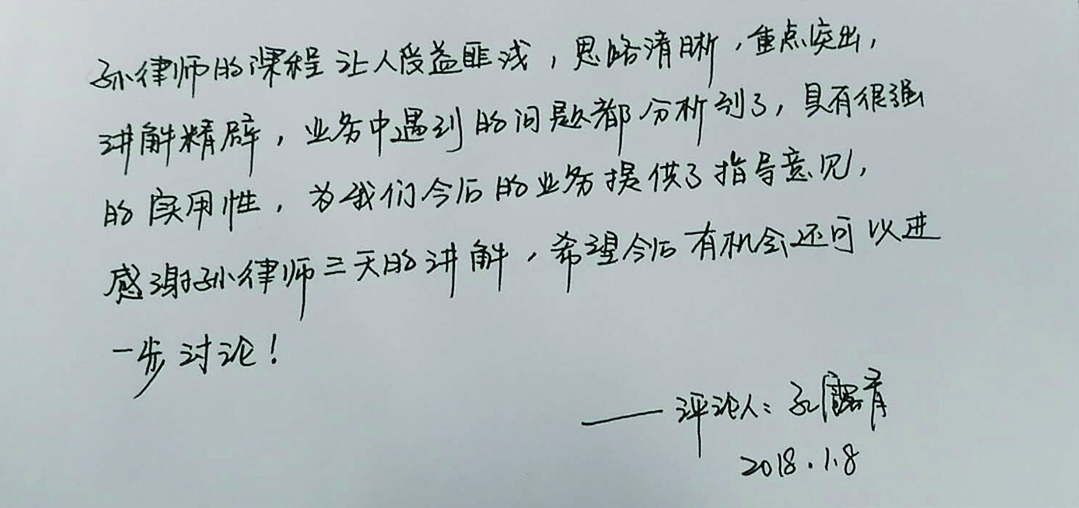 孙律师的课程让人受益匪浅，思路清晰，重点突出，
讲解精辟，业务中遇到的问题都分析到了，具有很强
的实用性，为我们今后的业务提供了指导意见，
感谢孙律师三天的讲解，希望今后有机会还可以进
一步讨论！
——评论人：孔
2018.1.8